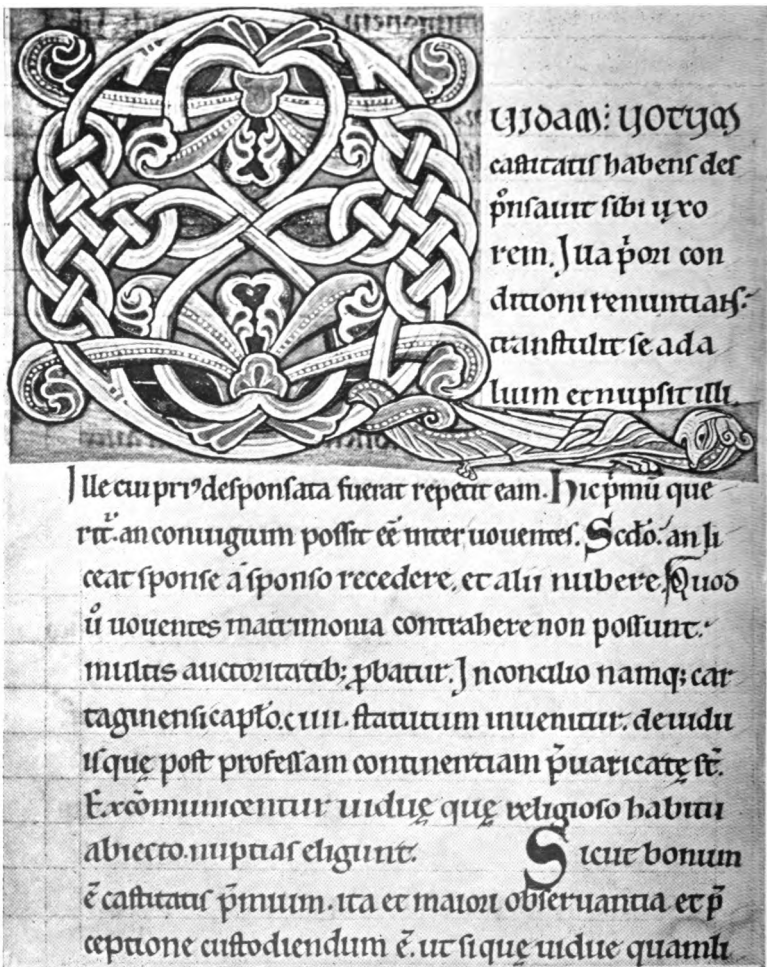 QUIDAM: UOTUM
castitatis habens des
p̊nsauit sibi uxo
rem. Illa p͛ori con
ditioni renuntians.
transtulit se ad a
lium et nupsit illi.
Ille cui pri᾿ desponsata fuerat repetit eam. Hic p͛mū que
rit᷑. an coniugium possit eē inter uouentes. Scdo. an li
ceat sponse a sponso recedere. et alii nubere. Quod
u̕ uouentes matrimonia contrahere non possunt.
multis auctoritatib; ꝓbatur. In concilio namq; car
taginensi capto. c iiii. statutum inuenitur. de uidu
is que post professam continentiam p̄uaricatę st̄.
Excōmunicentur uiduę quę religioso habitu
abiecto. nuptias eligunt. Sicut bonum
ē castitatis p̄mium. ita et maiori obseruantia et p̄
ceptione custodiendum ē. ut si quę uidue quamli